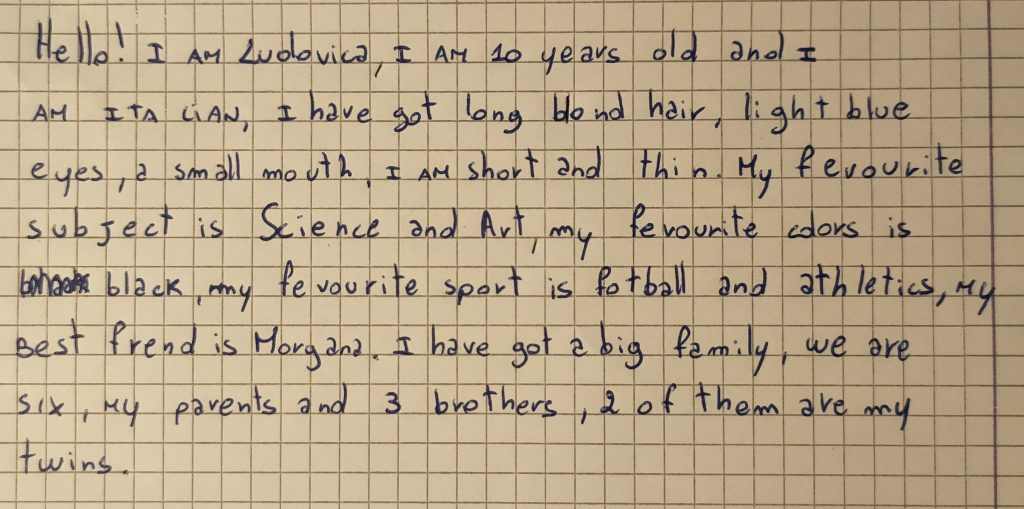 Hello! I AM Ludovica, I AM 10 years old and I
AM ITALIAN, I have got long blond hair, light blue
eyes, a small mouth, I AM short and thin. My fevourite
subject is Science and Art, my fevourite colors is
black, my fevourite sport is fotball and athletics, My
Best frend is Morgana. I have got a big family, we are
six, My parents and 3 brothers, 2 of them are my
twins.